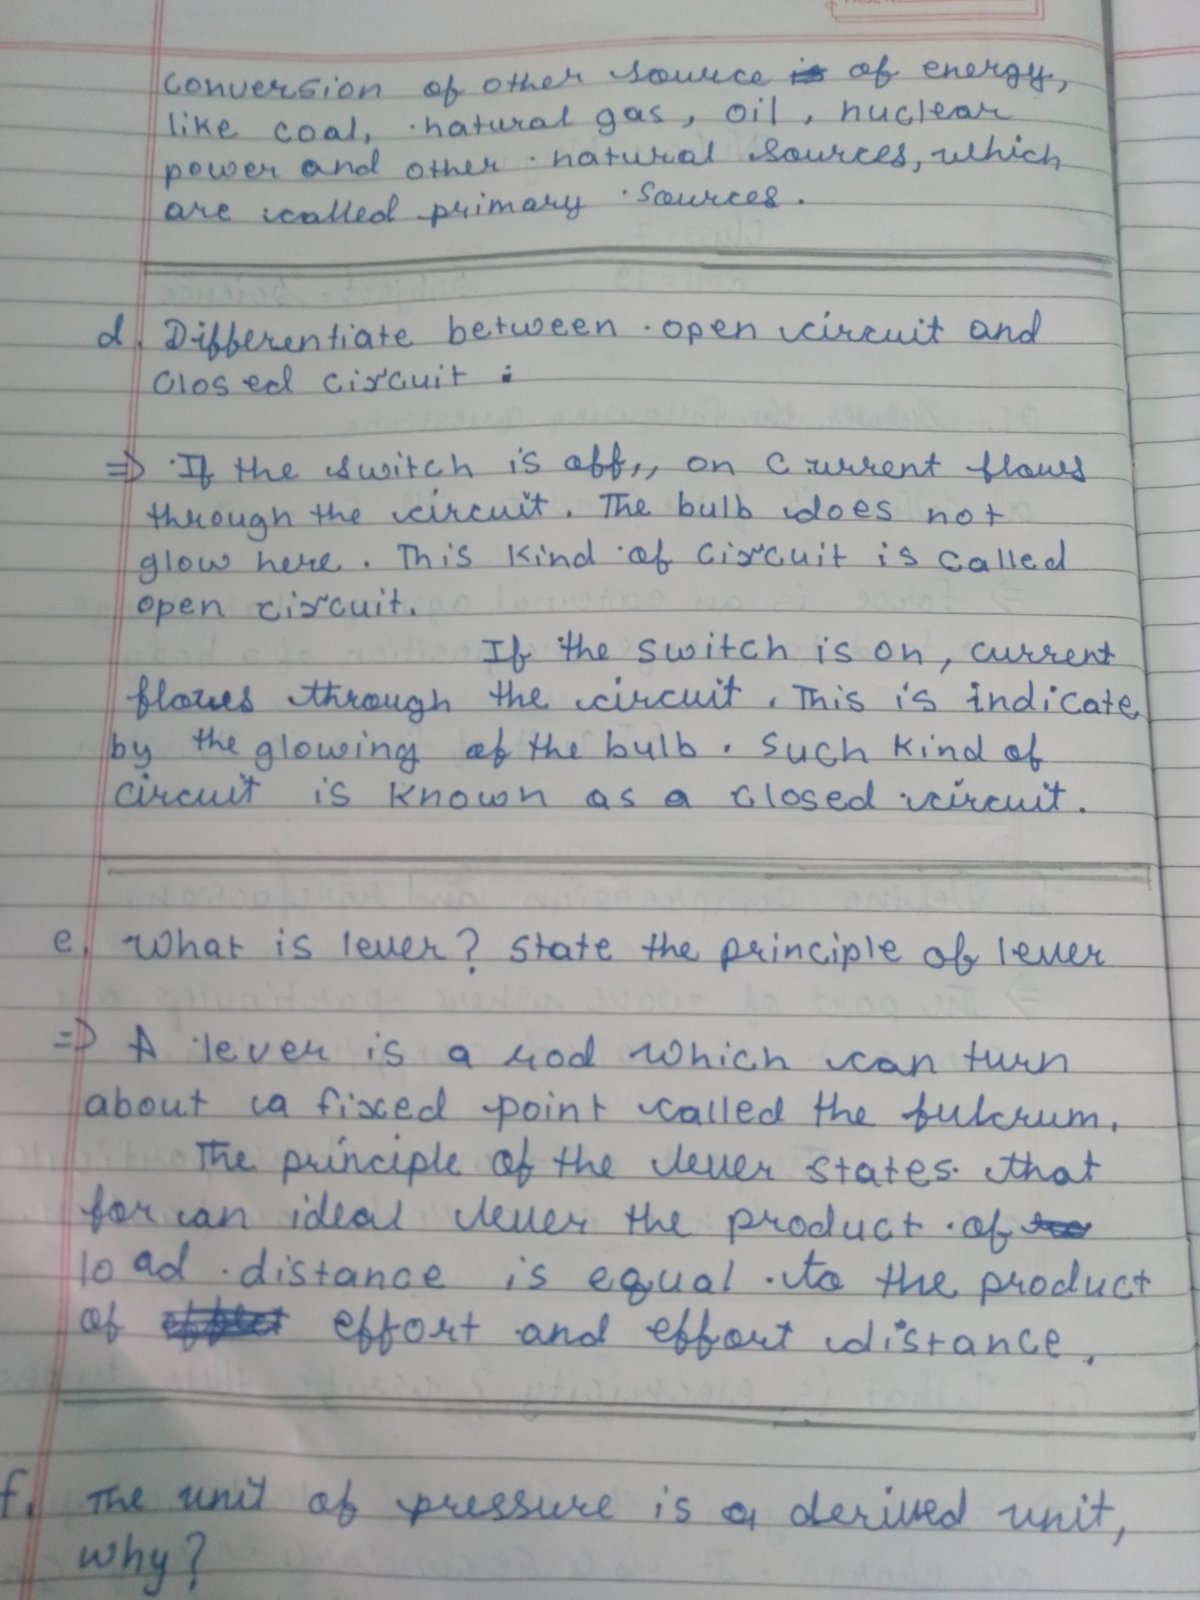 conversion of other source is of energy,
like coal, natural gas, oil, nuclear
power and other natural sources, which
are called primary sources.
d. Differentiate between open circuit and
closed circuit :
=> If the switch is off,, on current flows
through the circuit. The bulb does not
glow here. This kind of circuit is called
open circuit.
If the switch is on, current
flows through the circuit. This is indicate
by the glowing of the bulb. Such kind of
circuit is known as a closed circuit.
e. What is lever? State the principle of lever
=> A lever is a rod which can turn
about a fixed point called the fulcrum.
The principle of the lever states that
for an ideal lever the product of
load distance is equal to the product
of effort and effort distance.
f. The unit of pressure is a derived unit,
why?